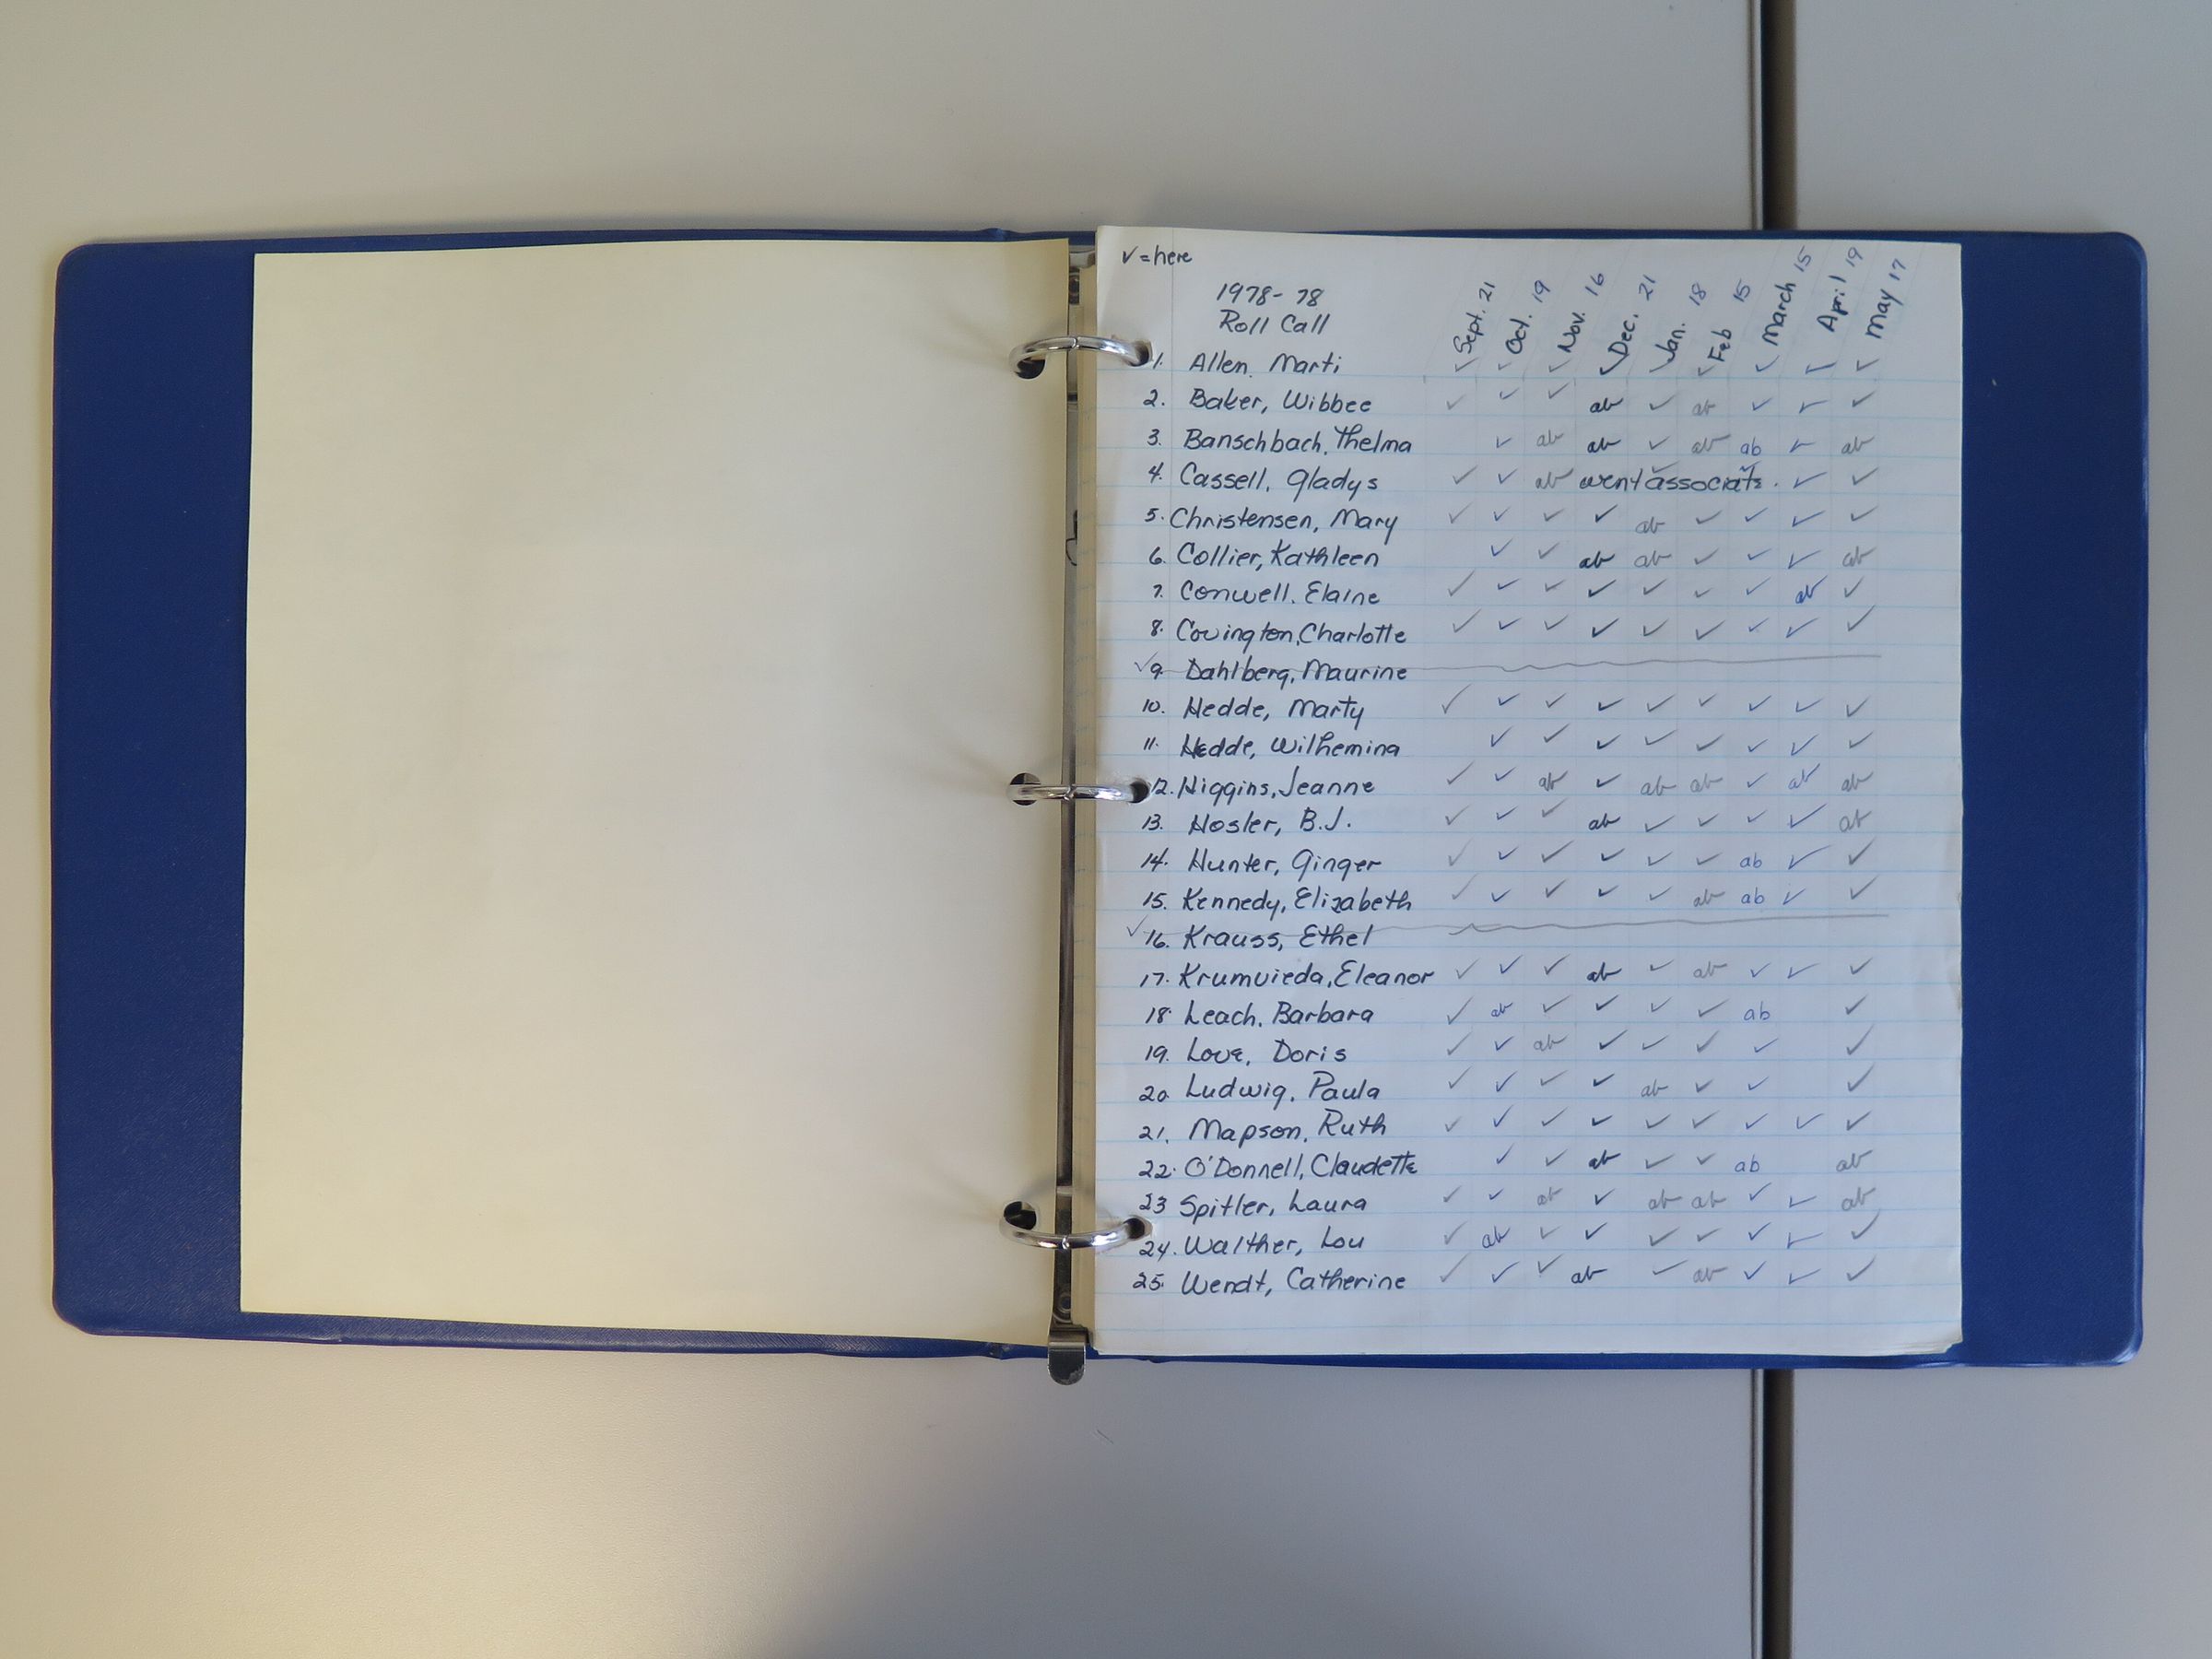 ✓=here
1978-78
Roll Call
Sept. 21 Oct. 19 Nov. 16 Dec. 21 Jan. 18 Feb 15 March 15 April 19 May 17
1. Allen, Marti ✓ ✓ ✓ ✓ ✓ ✓ ✓ ✓ ✓
2. Baker, Wibbee ✓ ✓ ✓ ab ✓ ab ✓ ✓ ✓
3. Banschbach, Thelma ✓ ab ab ✓ ab ab ✓ ab
4. Cassell, Gladys ✓ ✓ ab went associate. ✓ ✓ ✓ ✓
5. Christensen, Mary ✓ ✓ ✓ ✓ ab ✓ ✓ ✓ ✓
6. Collier, Kathleen ✓ ✓ ab ab ✓ ✓ ✓ ab
7. Conwell, Elaine ✓ ✓ ✓ ✓ ✓ ✓ ✓ ab ✓
8. Covington, Charlotte ✓ ✓ ✓ ✓ ✓ ✓ ✓ ✓ ✓
✓ 9. Dahlberg, Maurine
10. Hedde, Marty ✓ ✓ ✓ ✓ ✓ ✓ ✓ ✓ ✓
11. Hedde, Wilhemina ✓ ✓ ✓ ✓ ✓ ✓ ✓ ✓
12. Higgins, Jeanne ✓ ✓ ab ✓ ab ab ✓ ab ab
13. Hosler, B.J. ✓ ✓ ✓ ab ✓ ✓ ✓ ✓ ab
14. Hunter, Ginger ✓ ✓ ✓ ✓ ✓ ✓ ab ✓ ✓
15. Kennedy, Elizabeth ✓ ✓ ✓ ✓ ✓ ab ab ✓ ✓
✓ 16. Krauss, Ethel
17. Krumvieda, Eleanor ✓ ✓ ✓ ab ✓ ab ✓ ✓ ✓
18. Leach, Barbara ✓ ab ✓ ✓ ✓ ✓ ab ✓
19. Love, Doris ✓ ✓ ab ✓ ✓ ✓ ✓ ✓
20. Ludwig, Paula ✓ ✓ ✓ ✓ ab ✓ ✓ ✓
21. Mapson, Ruth ✓ ✓ ✓ ✓ ✓ ✓ ✓ ✓ ✓
22. O'Donnell, Claudette ✓ ✓ ab ✓ ✓ ab ab
23 Spitler, Laura ✓ ✓ ab ✓ ab ab ✓ ✓ ab
24. Walther, Lou ✓ ab ✓ ✓ ✓ ✓ ✓ ✓ ✓
25. Wendt, Catherine ✓ ✓ ✓ ab ✓ ab ✓ ✓ ✓